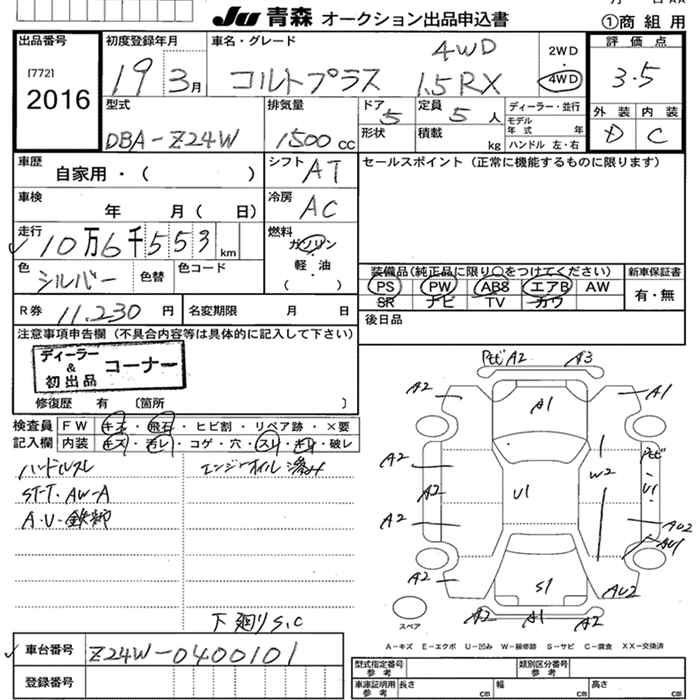 JU 青森 オークション出品申込書
①商 組 用
出品番号 初度登録年月 車名・グレード 4WD 2WD 評 価 点
[772] 19 3月 コルトプラス 1.5RX 4WD 3.5
2016
型式 排気量 ドア 5 定員 5 人 ディーラー・並行 外 装 内 装
DBA-Z24W 1500 cc 形状 積載 kg モデル年 式 年 D C
ハンドル 左・右
車歴 自家用・( ) シフト AT セールスポイント (正常に機能するものに限ります)
車検 年 月( 日) 冷房 AC
走行 10万6千553 km 燃料 ガソリン
軽・油
( )
色 シルバー 色替 色コード
装備品(純正品に限り○をつけてください) 新車保証書
PS PW ABS エアB AW 有・無
SR ナビ TV カワ
R券 11,230 円 名変期限 月 日 後日品
注意事項申告欄 (不具合内容等は具体的に記入して下さい)
ディーラー & 初出品 コーナー
修復歴 有 〔箇所 〕
検査員 FW キズ・飛石・ヒビ割・リペア跡・×要
記入欄 内装 キズ・汚レ・コゲ・穴・スレ・キレ・破レ
ハンドルスレ エンジンオイル滲み
ST-T・AW-A
下廻りS,C
A2 A3
A2 A1 A1
A2 W2
A2 U1 U1
A2 AU2
AU1
A2 S1 AU2
A2 A1 A2
スペア
A-キズ E-エクボ U-凹み W-補修跡 S-サビ C-腐食 XX-交換済
車台番号 Z24W-0400101
登録番号
型式指定番号 参 考 類別区分番号 参 考
車庫証明用 参 考 長さ cm 幅 cm 高さ cm